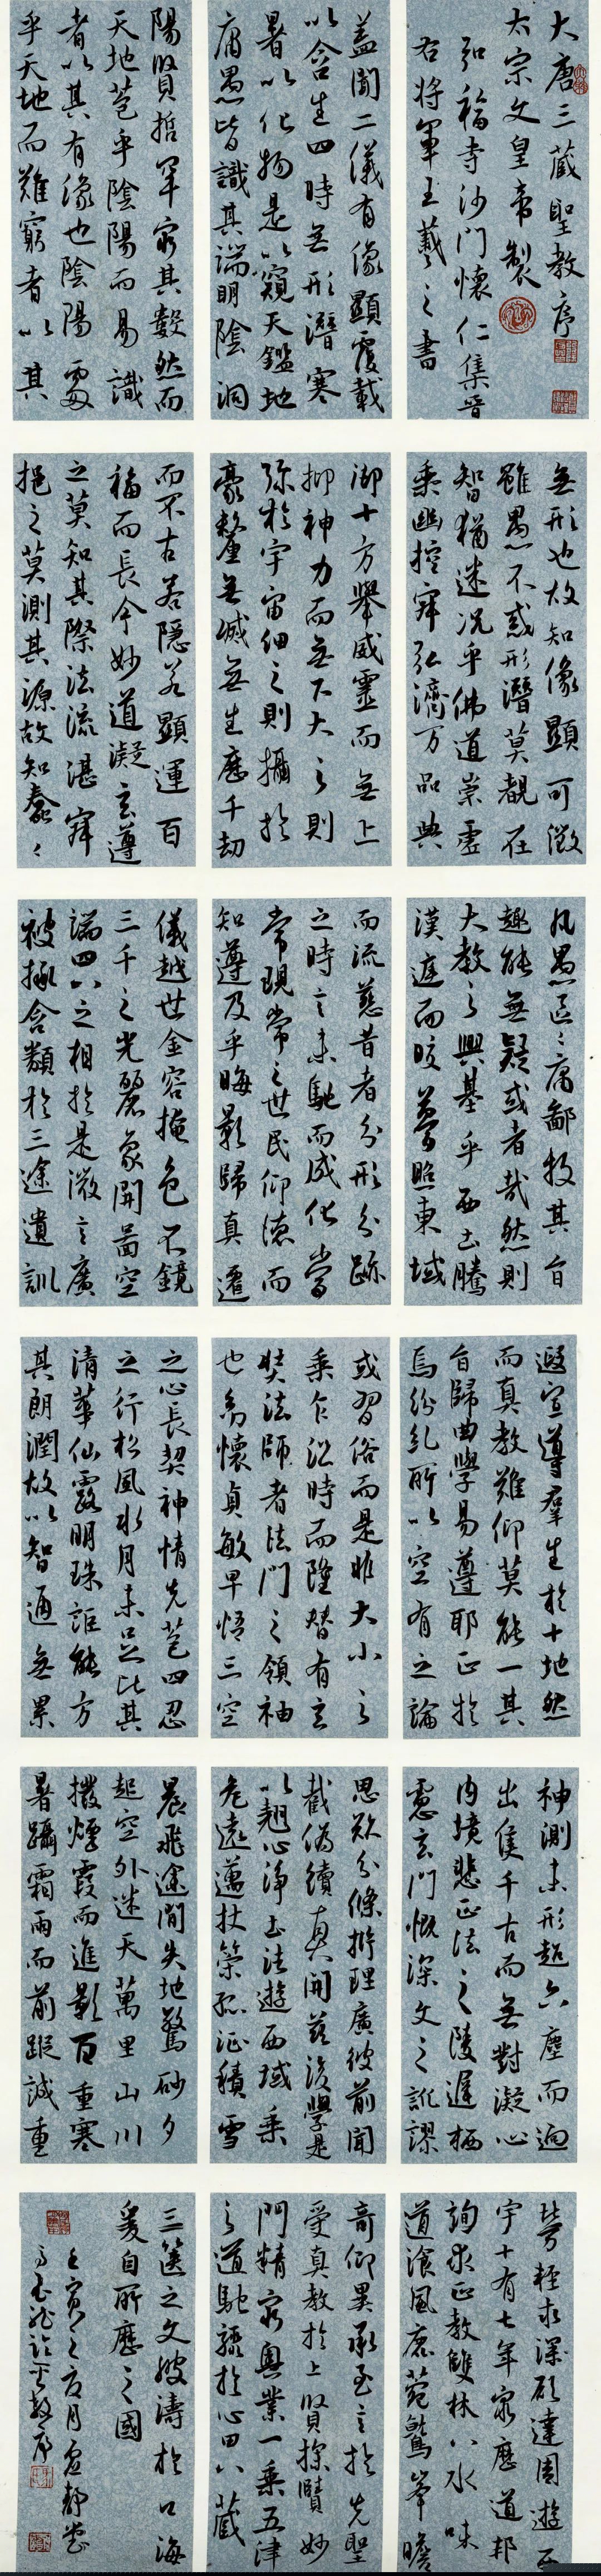 大唐三藏聖教序
太宗文皇帝製
弘福寺沙門懷仁集晉
右將軍王羲之書
蓋聞二儀有像顯覆載
以含生四時無形潛寒
暑以化物是以窺天鑑地
庸愚皆識其端明陰洞
陽賢哲罕窮其數然而
天地苞乎陰陽而易識
者以其有像也陰陽處
乎天地而難窮者以其
無形也故知像顯可徵
雖愚不惑形潛莫覩在
智猶迷况乎佛道崇虛
乘幽控寂弘濟万品典
御十方舉威靈而無上
抑神力而無下大之則
弥於宇宙細之則攝於
豪釐無滅無生歷千劫
而不古若隱若顯運百
福而長今妙道凝玄遵
之莫知其際法流湛寂
挹之莫測其源故知蠢蠢
凡愚區區庸鄙投其旨
趣能無疑或者哉然則
大教之興基乎西土騰
漢庭而皎夢照東域
而流慈昔者分形分跡
之時言未馳而成化當
常現常之世民仰德而
知遵及乎晦影歸真遷
儀越世金容掩色不鏡
三千之光麗象開圖空
端四八之相於是微言廣
被拯含類於三途遺訓
遐宣導群生於十地然
而真教難仰莫能一其
旨歸曲學易遵耶正於
焉紛糺所以空有之論
或習俗而是非大小之
乘乍沿時而隆替有玄
奘法師者法門之領袖
也幼懷貞敏早悟三空
之心長契神情先苞四忍
之行松風水月未足比其
清華仙露明珠詎能方
其朗潤故以智通無累
神測未形超六塵而迥
出隻千古而無對凝心
內境悲正法之陵遲栖
慮玄門慨深文之訛謬
思欲分條析理廣彼前聞
截偽續真開茲後學是
以翹心淨土法遊西域乘
危遠邁杖策孤征積雪
晨飛途間失地驚砂夕
起空外迷天萬里山川
撥煙霞而進影百重寒
暑躡霜雨而前蹤誠重
勞輕求深願達周遊西
宇十有七年窮歷道邦
詢求正教雙林八水味
道飡風鹿菀鷲峯瞻
奇仰異承至言於先聖
受真教於上賢探賾妙
門精窮奧業一乘五律
之道馳驟於心田八藏
三篋之文波濤於口海
爰自所歷之國
壬寅之夏月虛靜堂